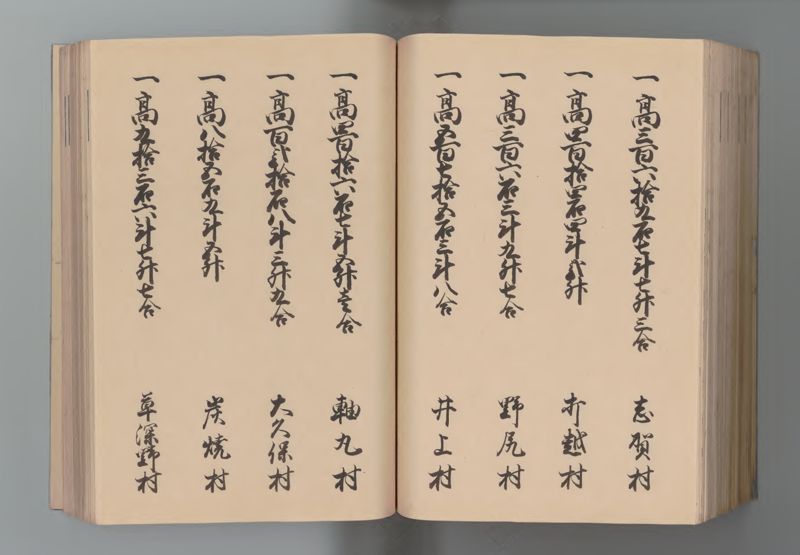 一高三百六拾九石七斗七升三合 志賀村
一高四百拾四石四斗弐升 打越村
一高三百六石三斗九升七合 野尻村
一高五百七拾五石三斗八合 井上村
一高四百拾六石七斗五升壱合 軸丸村
一高百弐拾石八斗三升九合 大久保村
一高八拾五石九斗五升 炭焼村
一高九拾三石六斗七升七合 草深野村